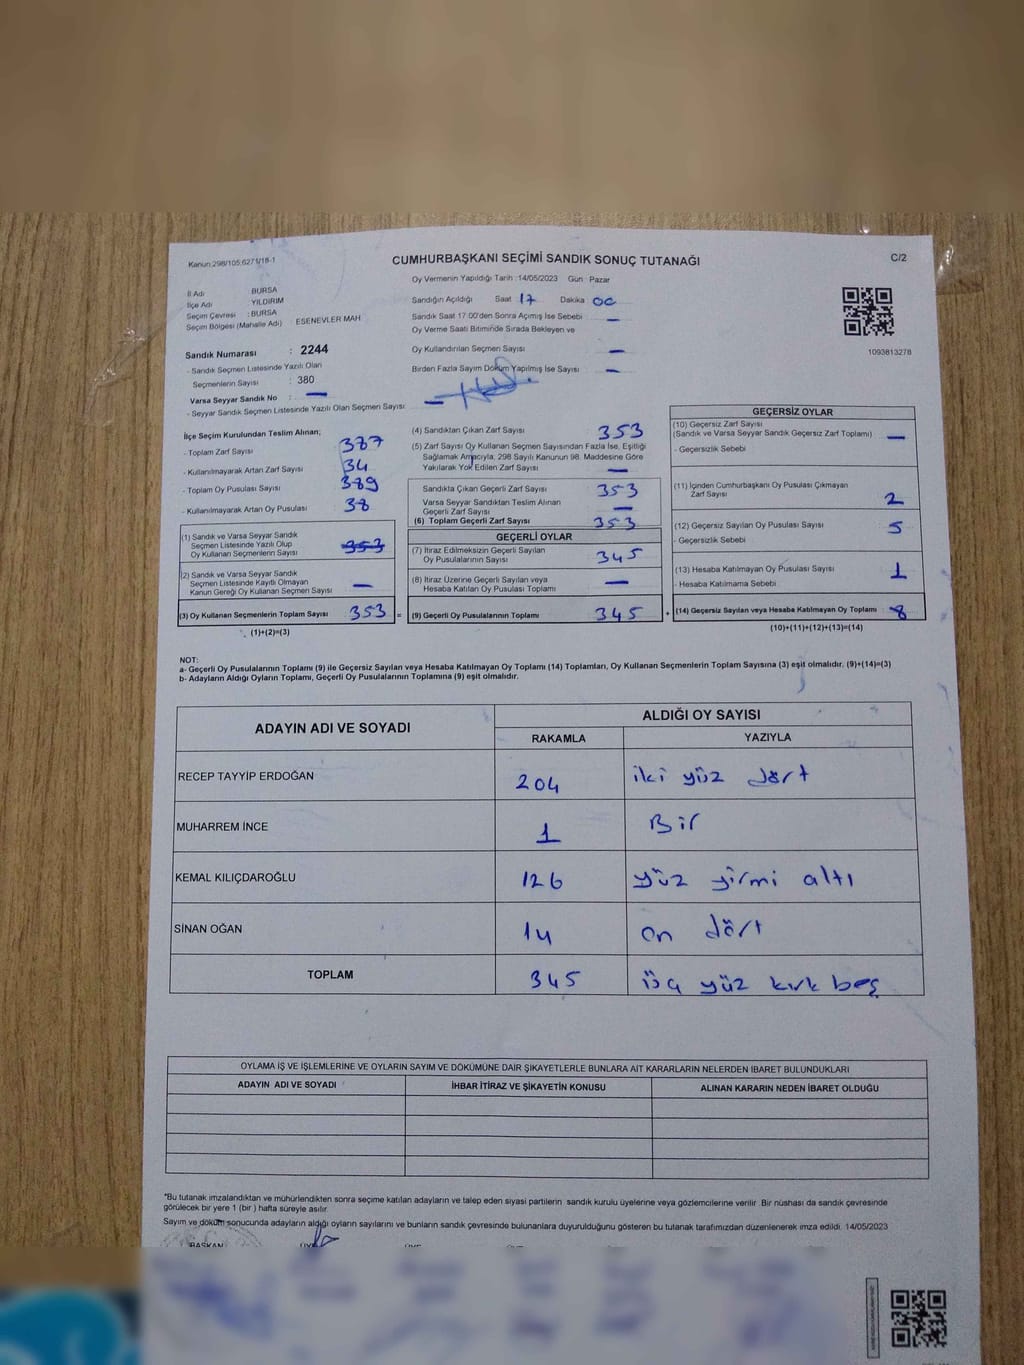 Kanun:298/105,627
CUMHURBAŞKANI SEÇİMİ SANDIK SONUÇ TUTANAĞI
C/2
Oy Vermenin Yapıldığı Tarih :14/05/2023 Gün Pazar
İl Adı BURSA
İlçe Adı YILDIRIM
Seçim Çevresi : BURSA
Seçim Bölgesi (Mahalle Adı) ESENEVLER MAH
Sandık Numarası : 2244
- Sandık Seçmen Listesinde Yazılı Olan
Seçmenlerin Sayısı : 380
Varsa Seyyar Sandık No : —
- Seyyar Sandık Seçmen Listesinde Yazılı Olan Seçmen Sayısı —
Sandığın Açıldığı Saat 17 Dakika 00
Sandık Saat 17.00'den Sonra Açımış İse Sebebi —
Oy Verme Saati Bitiminde Sırada Bekleyen ve
Oy Kullandırılan Seçmen Sayısı —
Birden Fazla Sayım Döküm Yapılmış İse Sayısı —
1093813278
İlçe Seçim Kurulundan Teslim Alınan;
- Toplam Zarf Sayısı 387
- Kullanılmayarak Artan Zarf Sayısı 34
- Toplam Oy Pusulası Sayısı 389
- Kullanılmayarak Artan Oy Pusulası 38
(1) Sandık ve Varsa Seyyar Sandık
Seçmen Listesinde Yazılı Olup
Oy Kullanan Seçmenlerin Sayısı 353
(2) Sandık ve Varsa Seyyar Sandık
Seçmen Listesinde Kayıtlı Olmayan
Kanun Gereği Oy Kullanan Seçmen Sayısı —
(3) Oy Kullanan Seçmenlerin Toplam Sayısı 353 =
(1)+(2)=(3)
(4) Sandıktan Çıkan Zarf Sayısı 353
(5) Zarf Sayısı Oy Kullanan Seçmen Sayısından Fazla İse, Eşitliği
Sağlamak Amacıyla, 298 Sayılı Kanunun 98. Maddesine Göre
Yakılarak Yok Edilen Zarf Sayısı —
Sandıkta Çıkan Geçerli Zarf Sayısı 353
Varsa Seyyar Sandıktan Teslim Alınan
Geçerli Zarf Sayısı —
(6) Toplam Geçerli Zarf Sayısı 353
GEÇERLİ OYLAR
(7) İtiraz Edilmeksizin Geçerli Sayılan
Oy Pusulalarının Sayısı 345
(8) İtiraz Üzerine Geçerli Sayılan veya
Hesaba Katılan Oy Pusulası Toplamı —
(9) Geçerli Oy Pusulalarının Toplamı 345 +
GEÇERSİZ OYLAR
(10) Geçersiz Zarf Sayısı
(Sandık ve Varsa Seyyar Sandık Geçersiz Zarf Toplamı) —
- Geçersizlik Sebebi
(11) İçinden Cumhurbaşkanı Oy Pusulası Çıkmayan
Zarf Sayısı 2
(12) Geçersiz Sayılan Oy Pusulası Sayısı 5
- Geçersizlik Sebebi
(13) Hesaba Katılmayan Oy Pusulası Sayısı 1
- Hesaba Katılmama Sebebi
(14) Geçersiz Sayılan veya Hesaba Katılmayan Oy Toplamı 8
(10)+(11)+(12)+(13)=(14)
NOT:
a- Geçerli Oy Pusulalarının Toplamı (9) ile Geçersiz Sayılan veya Hesaba Katılmayan Oy Toplamı (14) Toplamları, Oy Kullanan Seçmenlerin Toplam Sayısına (3) eşit olmalıdır. (9)+(14)=(3)
b- Adayların Aldığı Oyların Toplamı, Geçerli Oy Pusulalarının Toplamına (9) eşit olmalıdır.
ADAYIN ADI VE SOYADI
ALDIĞI OY SAYISI
RAKAMLA YAZIYLA
RECEP TAYYİP ERDOĞAN 204 iki yüz dört
MUHARREM İNCE 1 Bir
KEMAL KILIÇDAROĞLU 126 yüz yirmi altı
SİNAN OĞAN 14 on dört
TOPLAM 345 üç yüz kırk beş
OYLAMA İŞ VE İŞLEMLERİNE VE OYLARIN SAYIM VE DÖKÜMÜNE DAİR ŞİKAYETLERLE BUNLARA AİT KARARLARIN NELERDEN İBARET BULUNDUKLARI
ADAYIN ADI VE SOYADI İHBAR İTİRAZ VE ŞİKAYETİN KONUSU ALINAN KARARIN NEDEN İBARET OLDUĞU
*Bu tutanak imzalandıktan ve mühürlendikten sonra seçime katılan adayların ve talep eden siyasi partilerin sandık kurulu üyelerine veya gözlemcilerine verilir. Bir nüshası da sandık çevresinde
görülecek bir yere 1 (bir ) hafta süreyle asılır.
Sayım ve döküm sonucunda adayların aldığı oyların sayılarını ve bunların sandık çevresinde bulunanlara duyurulduğunu gösteren bu tutanak tarafımızdan düzenlenerek imza edildi. 14/05/2023
BAŞKAN